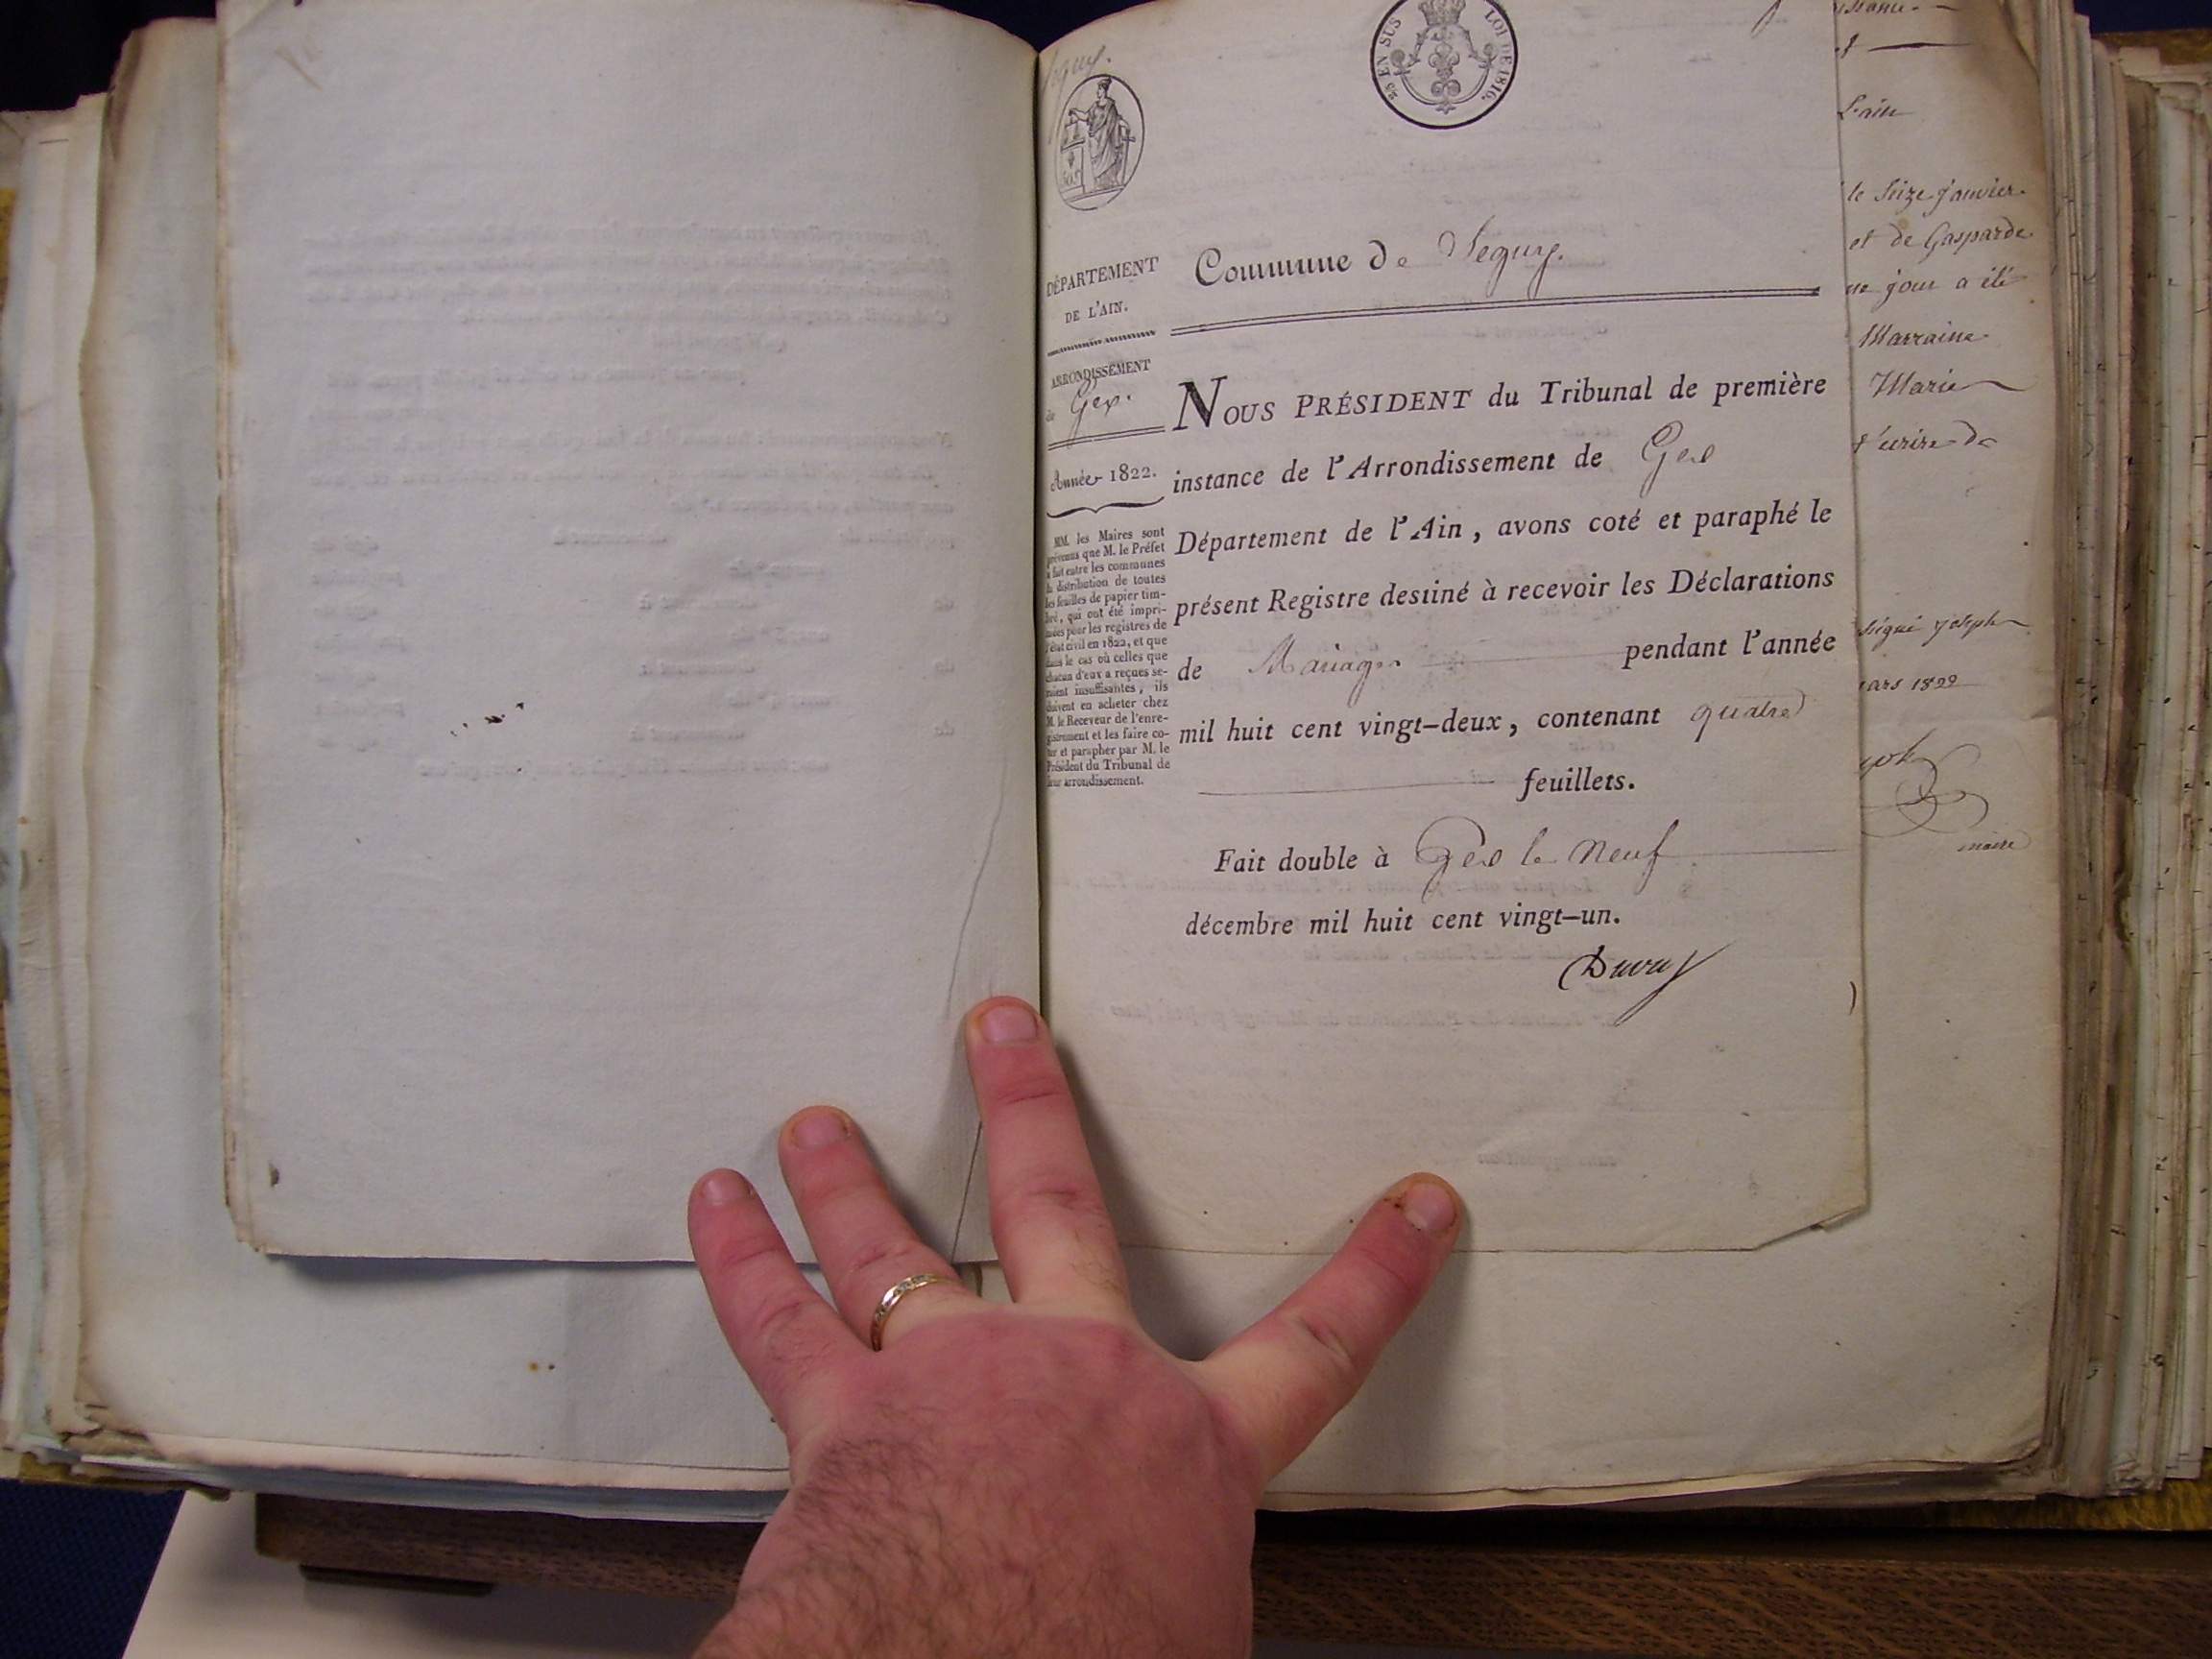 Seguy.
25 EN SUS
LOI DE 1816.
DÉPARTEMENT
DE L'AIN.
ARRONDISSEMENT
de Gex.
Année 1822.
MM. les Maires sont
prévenus que M. le Préfet
a fait entre les communes
la distribution de toutes
les feuilles de papier tim-
bré, qui ont été impri-
mées pour les registres de
l'état civil en 1822, et que
dans le cas où celles que
chacun d'eux a reçues se-
raient insuffisantes, ils
doivent en acheter chez
M. le Receveur de l'enre-
gistrement et les faire co-
ter et parapher par M. le
Président du Tribunal de
leur arrondissement.
Commune de Seguy.
NOUS PRÉSIDENT du Tribunal de première
instance de l'Arrondissement de Gex
Département de l'Ain, avons coté et paraphé le
présent Registre destiné à recevoir les Déclarations
de Mariage pendant l'année
mil huit cent vingt-deux, contenant quatre
feuillets.
Fait double à Gex le neuf
décembre mil huit cent vingt-un.
Duvay
l'ain
le seize janvier
et de Gasparde
jour a été
Marraine
Marie
écrire de
signé joseph
ars 1822
maire